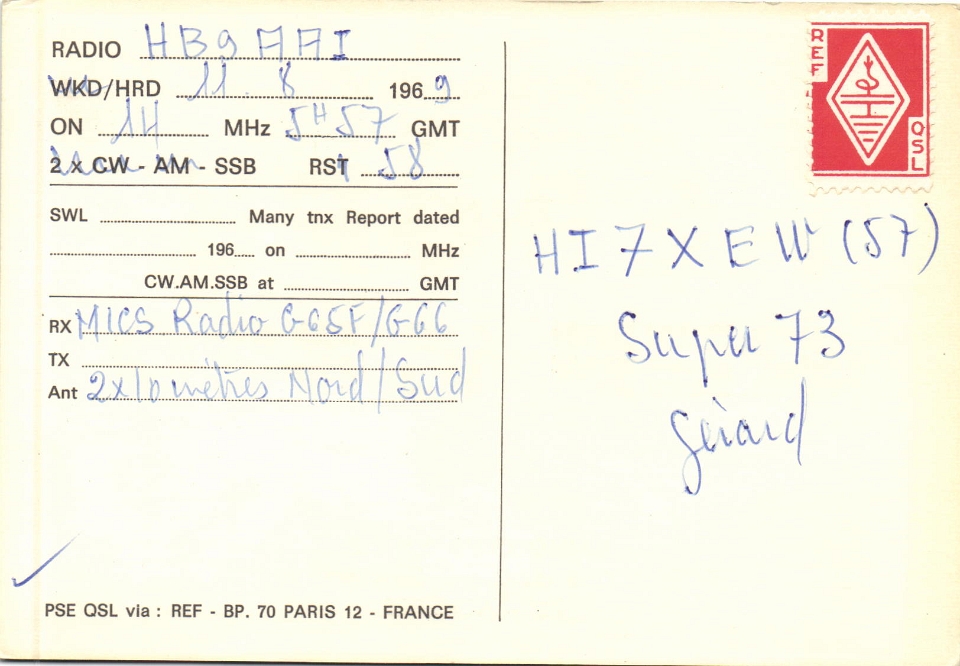 RADIO HB9AAI
WKD/HRD 11.8 1969
ON 14 MHz 5H57 GMT
2 x CW - AM - SSB RST 58
SWL Many tnx Report dated
196 on MHz
CW.AM.SSB at GMT
RX MICS Radio G65F/G66
TX
Ant 2x10 mètres Nord/Sud
PSE QSL via : REF - BP. 70 PARIS 12 - FRANCE
REF
QSL
HI7XEW (57)
Super 73
Gérard